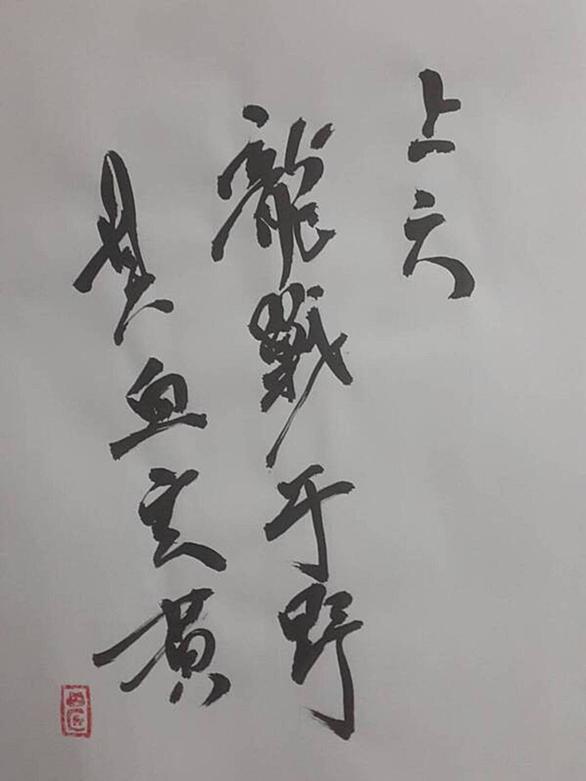 上六
龍戰于野
其血玄黃